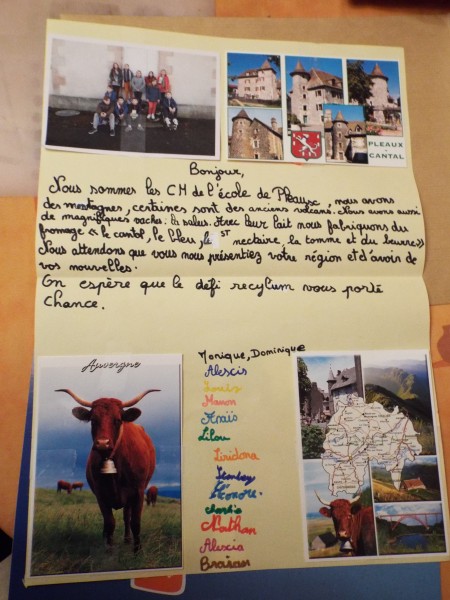 PLEAUX
CANTAL
Bonjour,
Nous sommes les CM de l'école de Pleaux, nous avons
des montagnes, certaines sont des anciens volcans. Nous avons aussi
de magnifiques vaches: la salers. Avec leur lait nous fabriquons du
fromage << le cantal, le bleu, le ST nectaire, la tomme et du beurre>>
Nous attendons que vous nous présentiez votre région et d'avoir de
vos nouvelles.
On espère que le défi recylum vous porte
chance.
Auvergne
Monique, Dominique
Alexis
Louis
Manon
Anaïs
Lilou
Liridona
Charlie
Nathan
Alexia